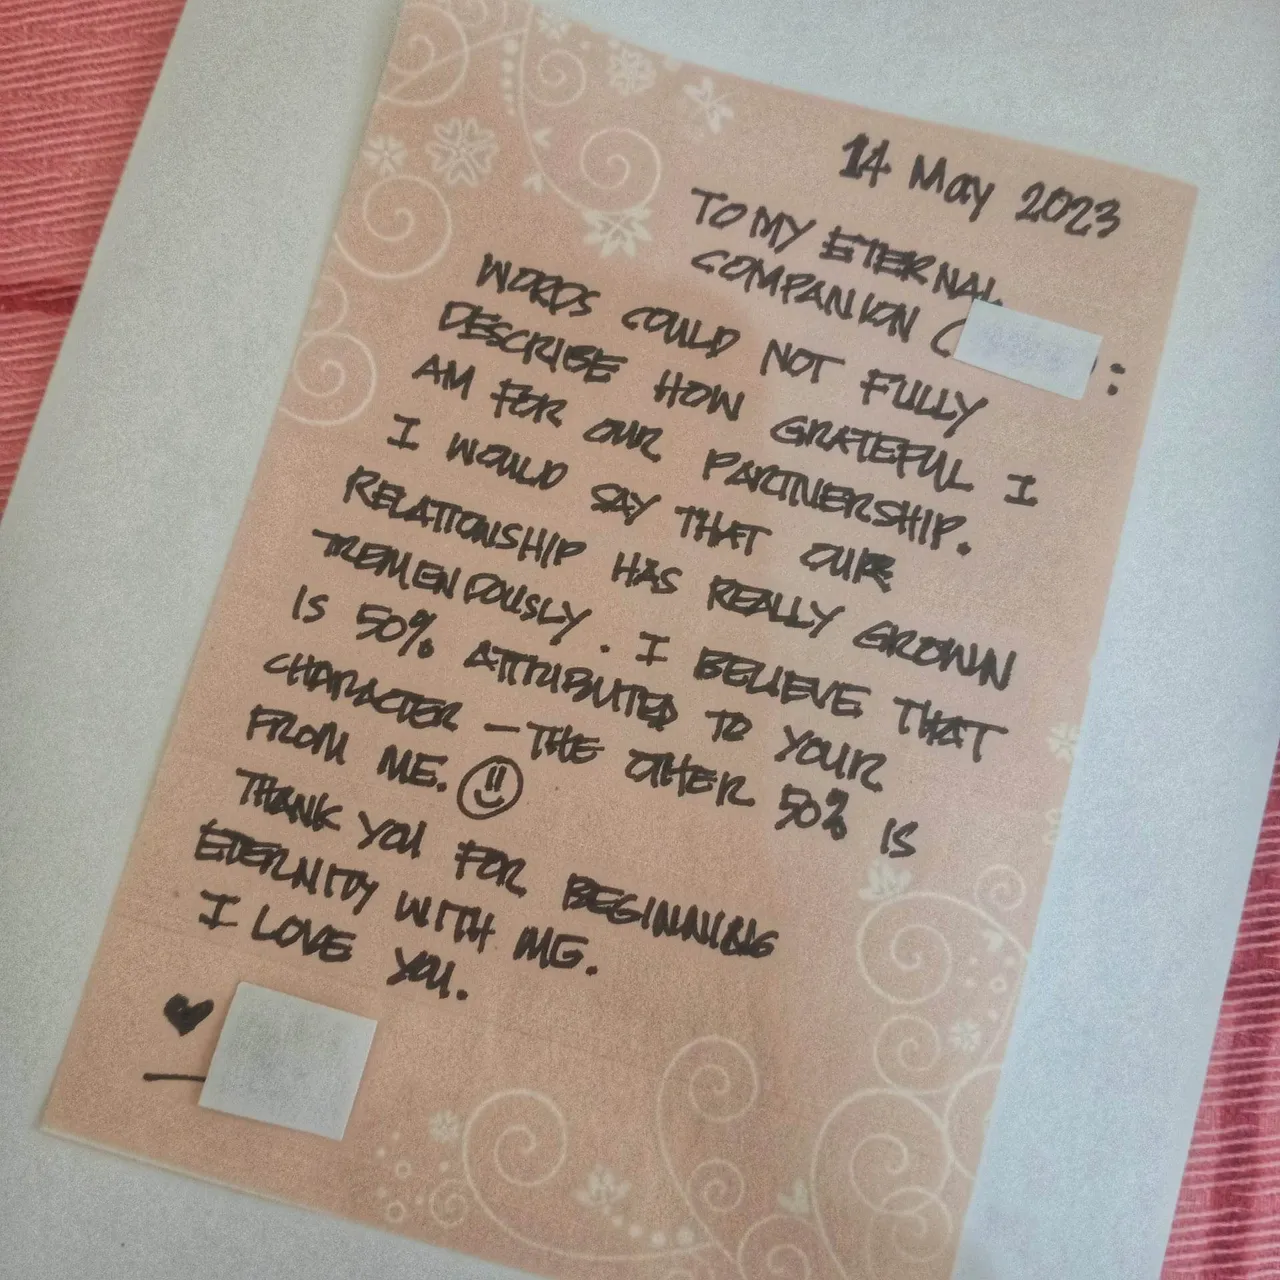 14 May 2023
TO MY ETERNAL
COMPANION (       ):
WORDS COULD NOT FULLY
DESCRIBE HOW GRATEFUL I
AM FOR OUR PARTNERSHIP.
I WOULD SAY THAT OUR
RELATIONSHIP HAS REALLY GROWN
TREMENDOUSLY. I BELIEVE THAT
IS 50% ATTRIBUTED TO YOUR
CHARACTER – THE OTHER 50% IS
FROM ME.
THANK YOU FOR BEGINNING
ETERNITY WITH ME.
I LOVE YOU.